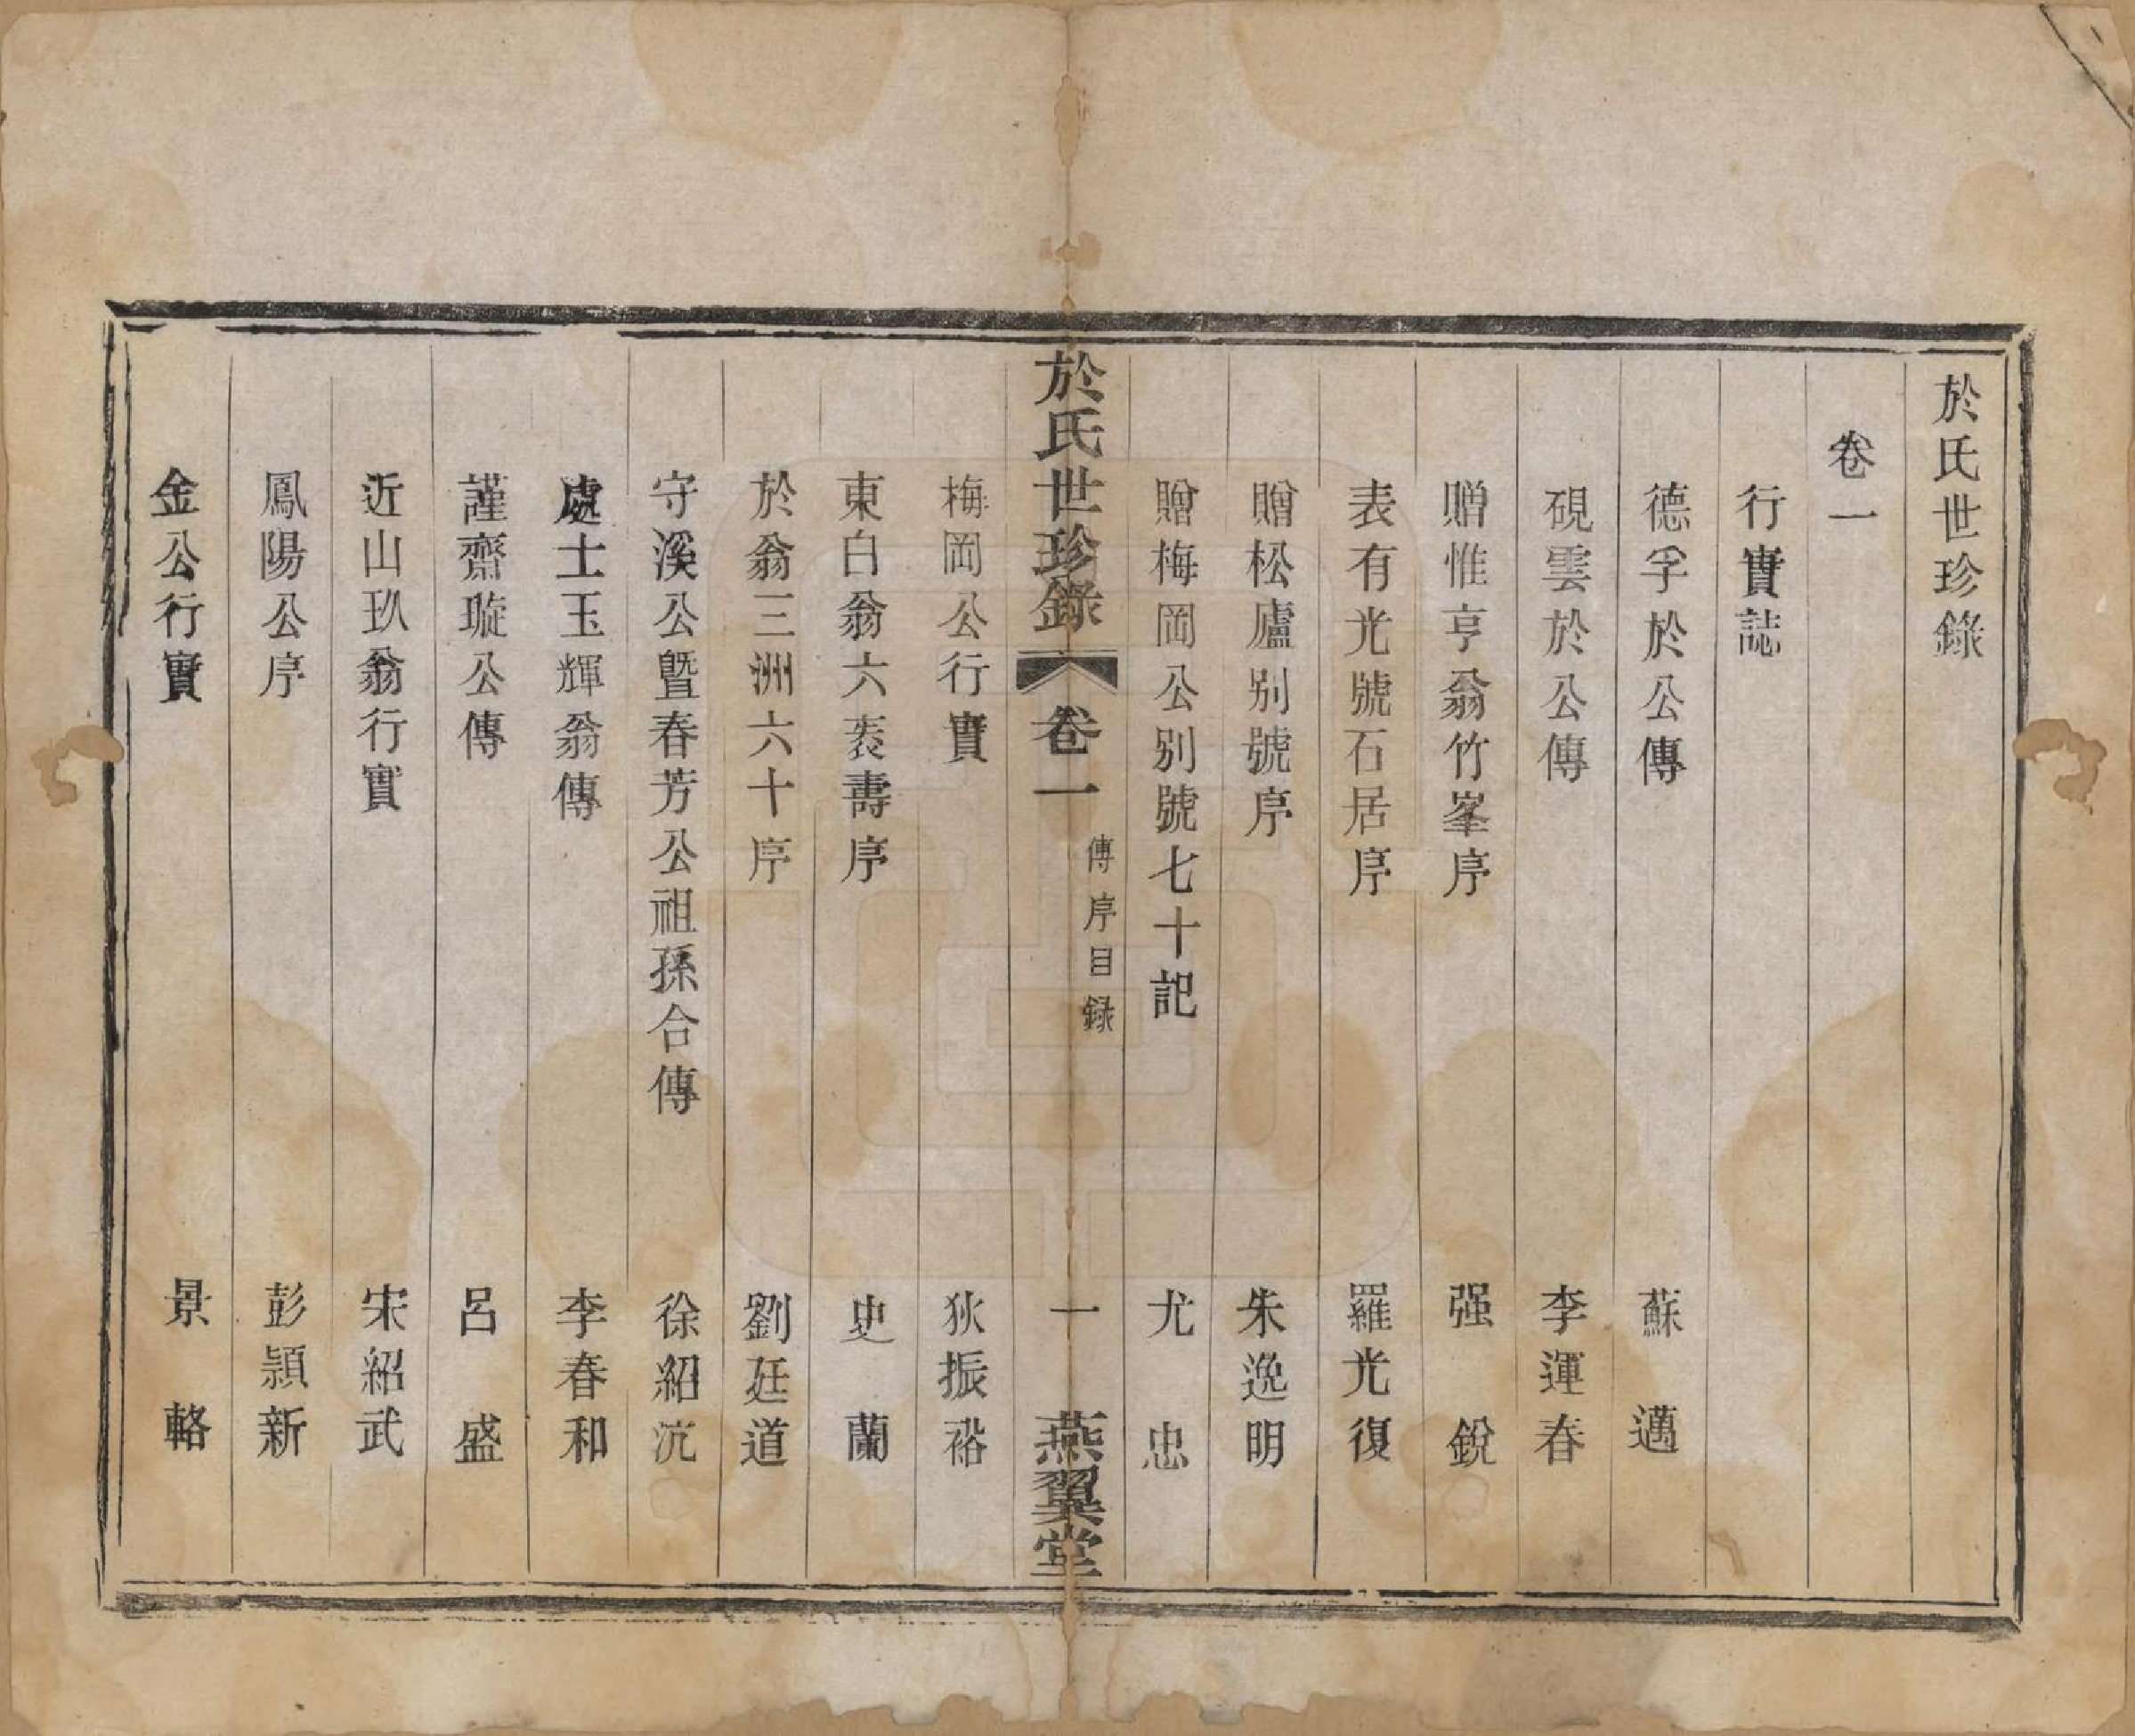 於氏世珍錄
卷一
行實誌
德孚於公傳 蘇邁
硯雲於公傳 李運春
贈惟亨翁竹峯序 强銳
表有光號石居序 羅光復
贈松廬别號序 朱逸明
贈梅岡公别號七十記 尤忠
於氏世珍錄 卷一 傳序目録 一 燕翼堂
梅岡公行實 狄振裕
東白翁六袠壽序 史蘭
於翁三洲六十序 劉廷道
守溪公暨春芳公祖孫合傳 徐紹沆
處士玉輝翁傳 李春和
謹齋璇公傳 呂盛
近山玖翁行實 宋紹武
鳳陽公序 彭頴新
金公行實 景輅